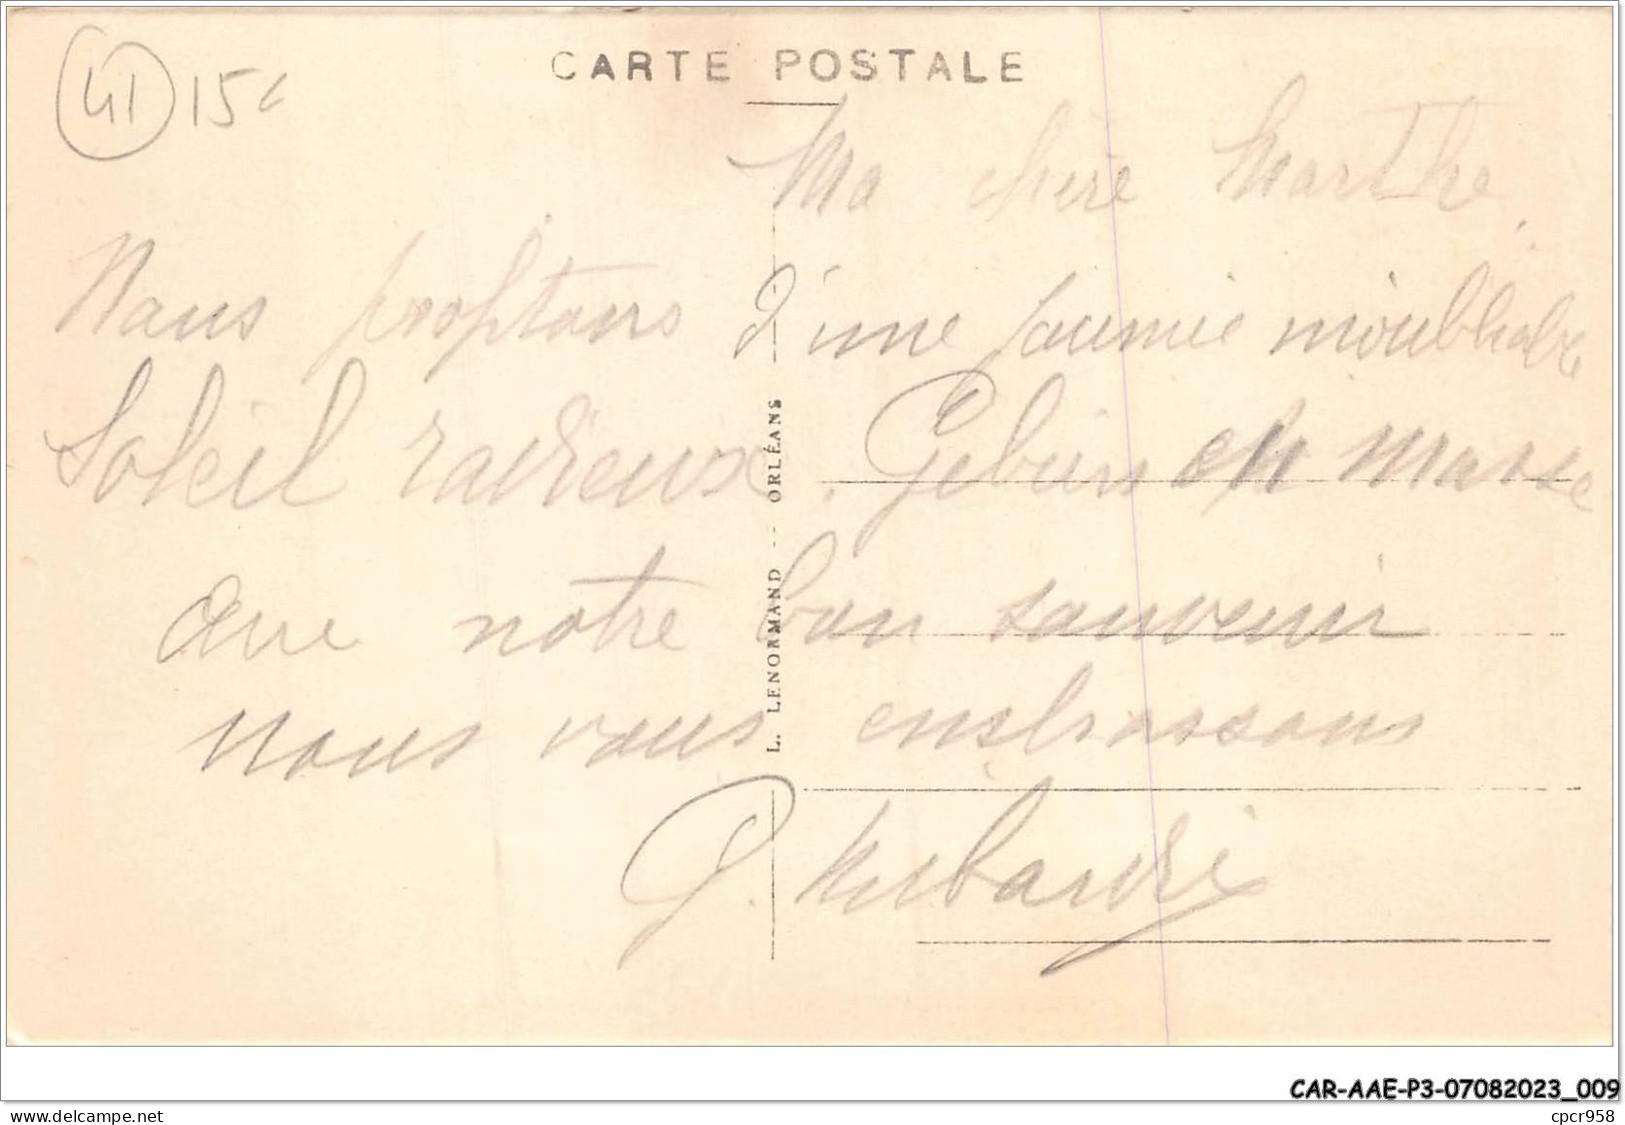 41 15
CARTE POSTALE
Ma chère Marthe
Nous profitons d'une journée inoubliable
Soleil radieux. en masse
notre bon souvenir
nous vous embrassons
G.
L. LENORMAND -- ORLÉANS
CAR-AAE-P3-07082023_009
www.delcampe.net
cpcr958